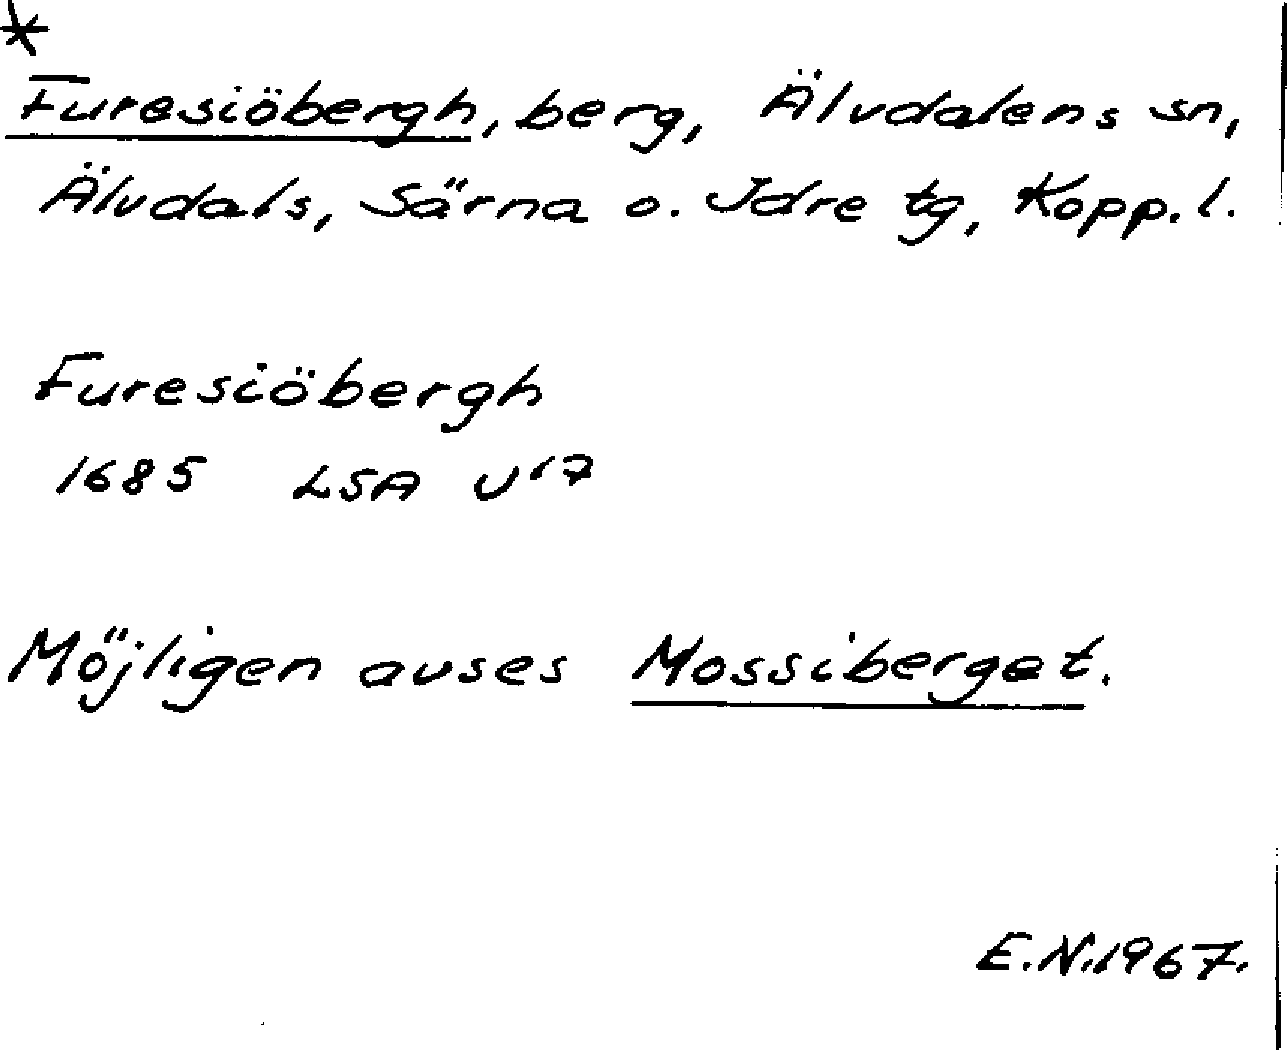 *
Furesiöbergh, berg, Älvdalens sn,
Älvdals, Särna o. Idre tg, Kopp. l.
Furesiöbergh
1685 LSA U17
Möjligen avses Mossiberget.
E.N. 1967.